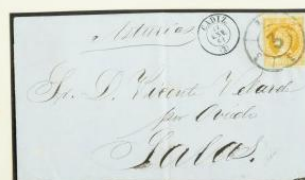 Asturias
CADIZ
Sr. D. Vicente Velarde
por Oviedo
Salas.